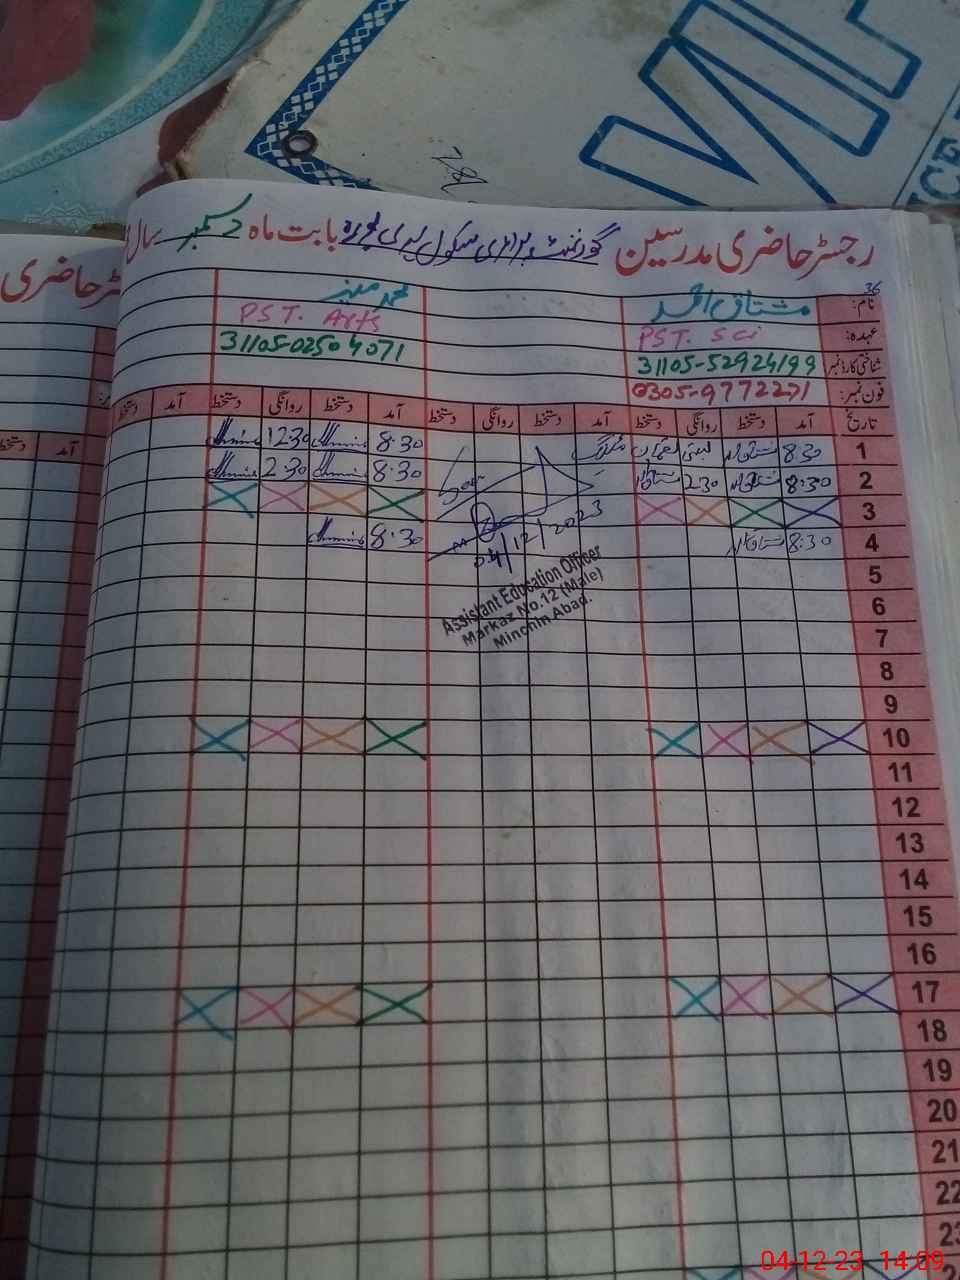 رجسٹر حاضری مدرسین گورنمنٹ پرائمری سکول بابت ماہ دسمبر سال
36
نام: مشتاق احمد محمد منیر
عہدہ: PST. Sci PST. Arts
شناختی کارڈ نمبر 31105-52924199 31105-02504071
فون نمبر: 0305-9772271
تاریخ آمد دستخط روانگی دستخط آمد دستخط روانگی دستخط آمد دستخط روانگی دستخط آمد دستخط
1 8:30 8:30 12:30
2 8:30 2:30 8:30 2:30
3
4 8:30 8:30
Seen
04/12/2023
Assistant Education Officer
Markaz No.12 (Male)
Minchin Abad.
5
6
7
8
9
10
11
12
13
14
15
16
17
18
19
20
21
22
23
حاضری
آمد
04-12-23 14:09